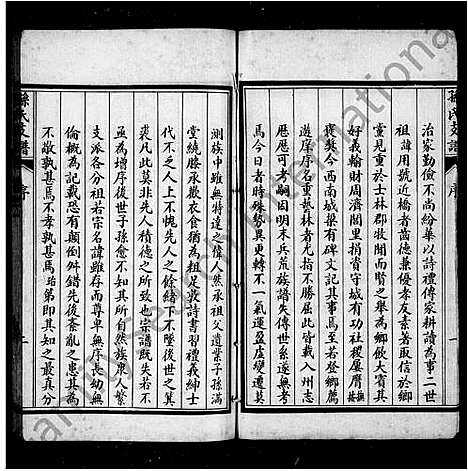 治家勤儉不尚紛華以詩禮傳家耕讀為事二世
祖諱用號近橋者齒德兼優孝友素著取信於鄉
黨見重於士林郡牧聞而賢之舉為鄉飲大賓其
好義輸財周濟閭里捐資守城有功杜屢膺
褒獎今西南城樑尚有碑文記其事焉至若登鄉薦
遊庠序名重藝林者尤指不勝屈此皆載入州志
歷歷可考嗣因明末兵荒族譜失傳世系遂無考
焉今日者時殊勢異史轉不一氣運盈虛變遷莫
測族中雖無特達之偉人然承祖父遺業子孫滿
堂繞膝承歡衣食猶為祖足敦詩書習禮義紳士
代不乏人上不愧先人之餘緒下不墜後世之箕
裘凡此莫非先人積德之所致也宗譜既失若不
亟為增序後世子孫愈不知其所自然族眾人繁
支派各分祖若宗名諱雖存而尊卑無序長幼無
倫概為記載恐有顛倒舛錯先後紊亂之患其為
不敬孰甚焉不孝孰甚焉珆弟即其知之最真分
孫氏支譜
序
一
孫氏支譜
序
二